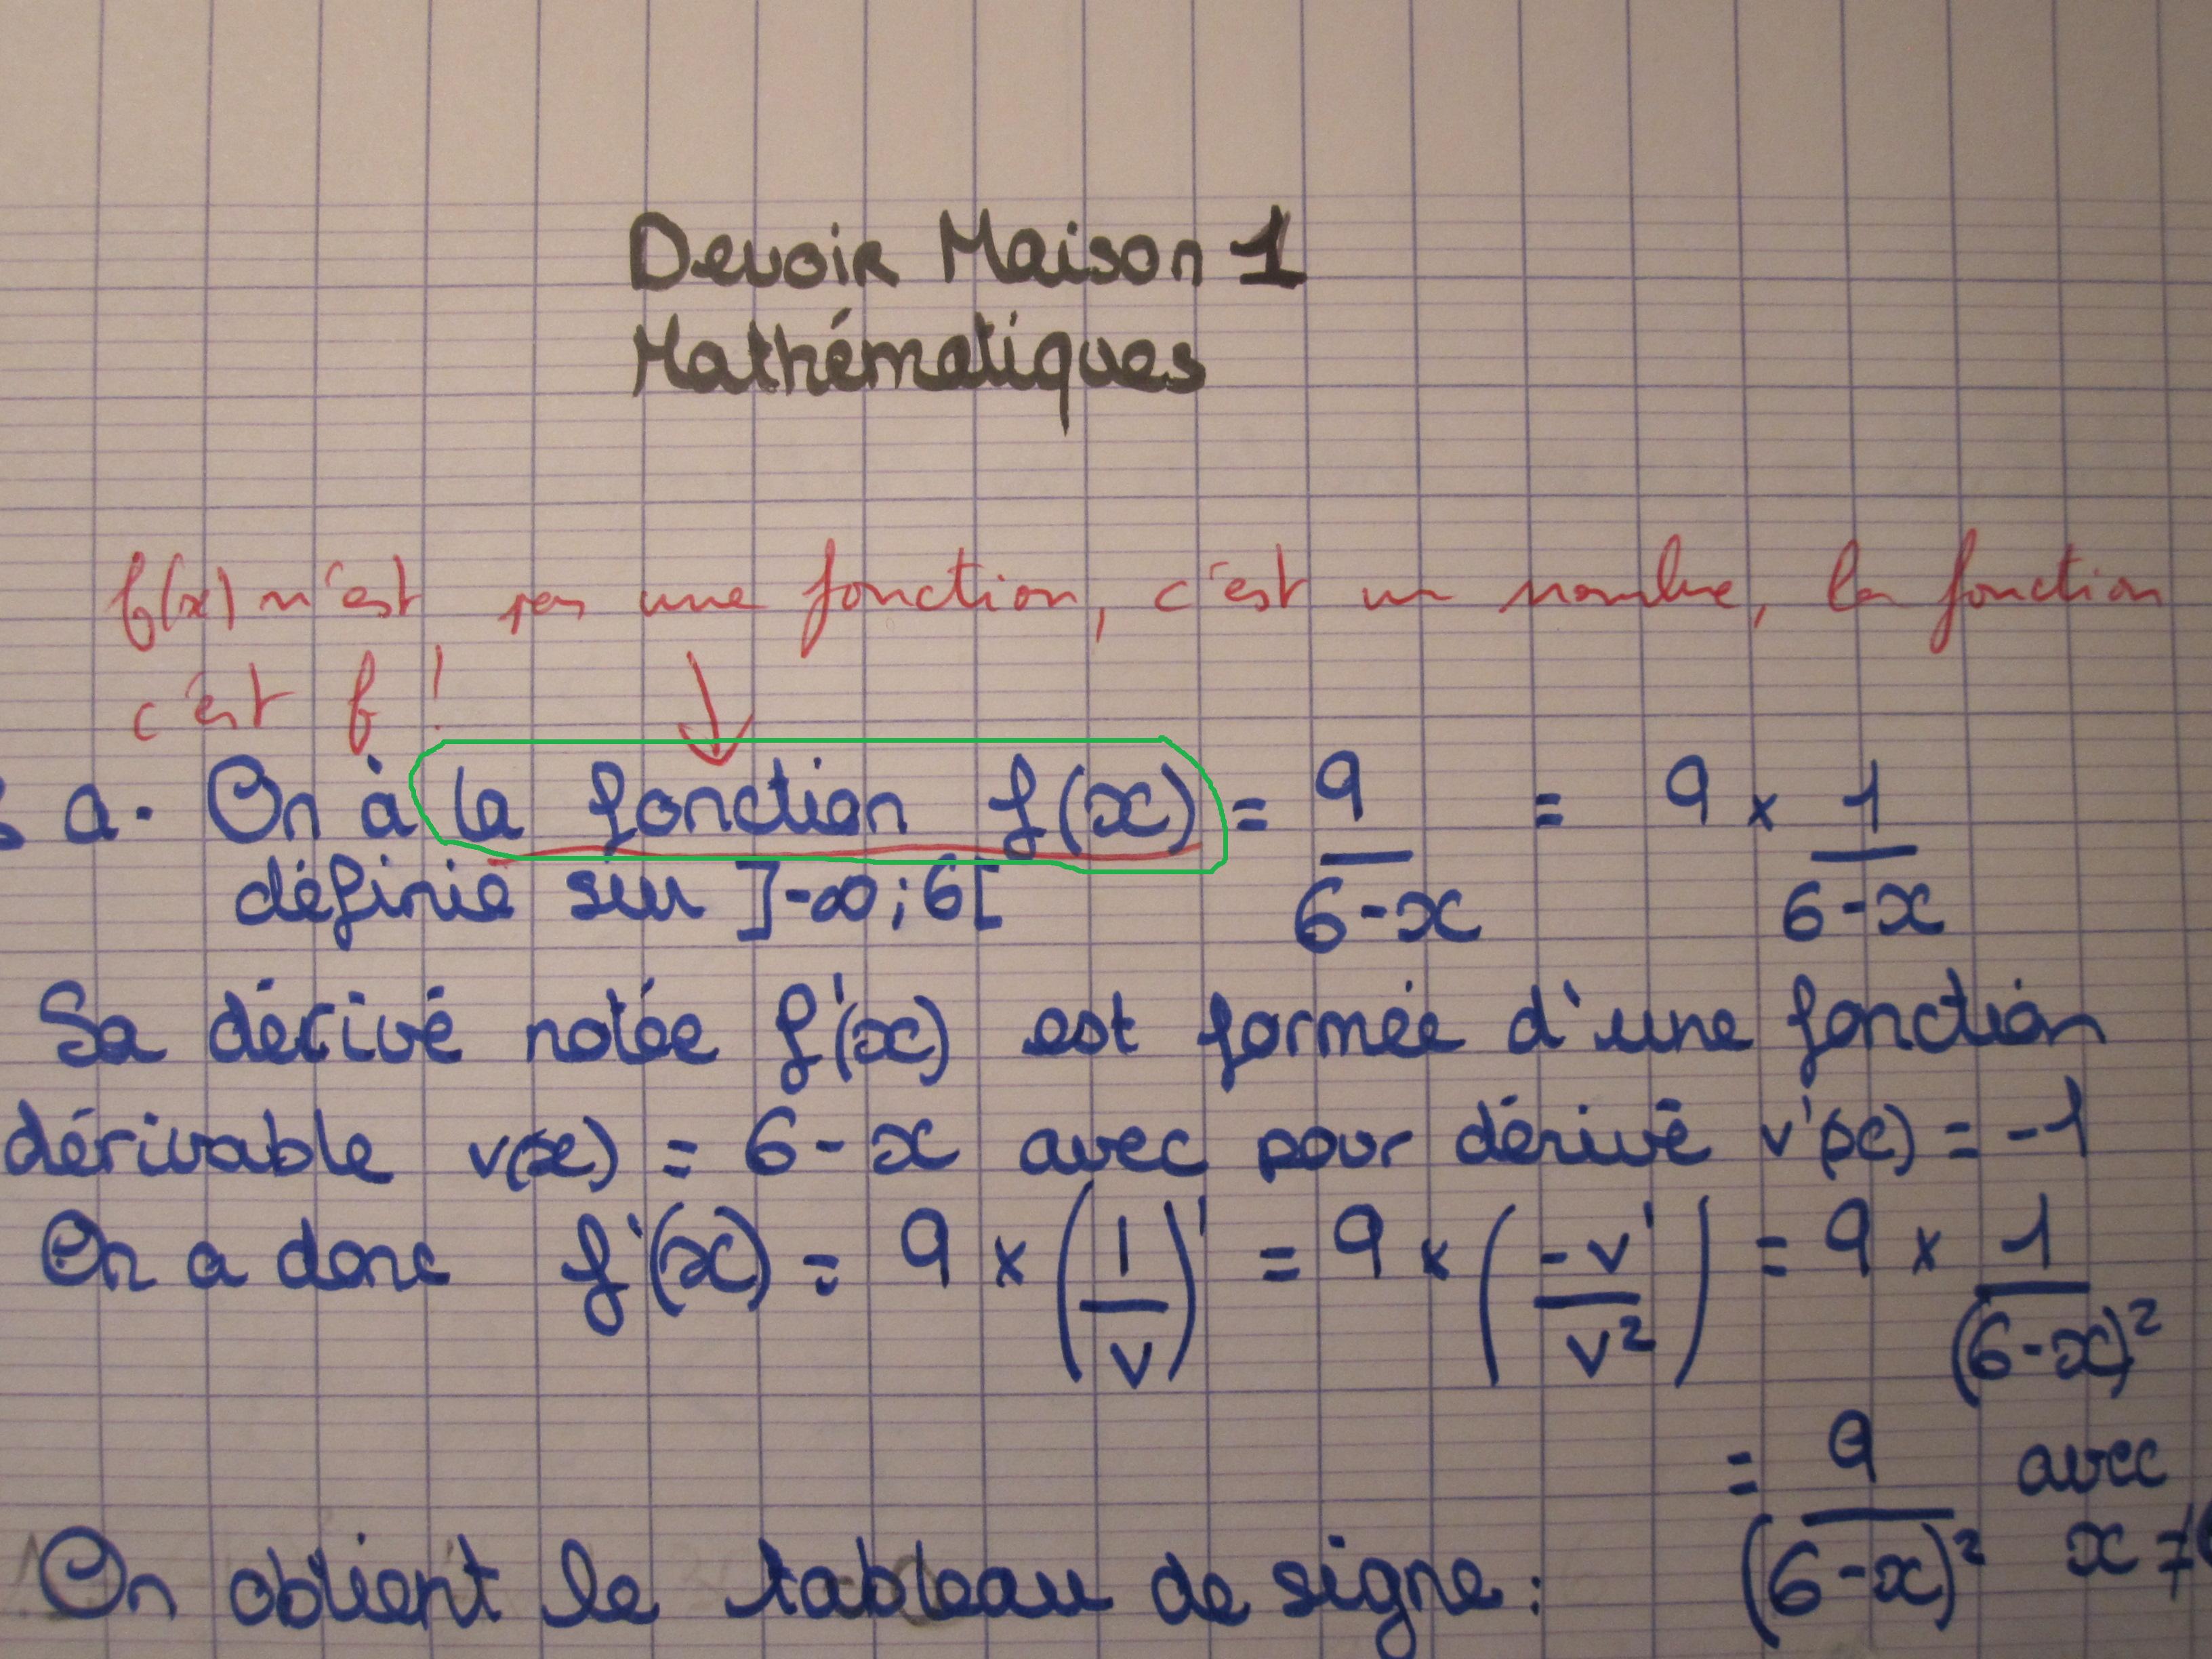 Devoir Maison 1
Mathématiques
f(x) n'est pas une fonction, c'est un nombre, la fonction
c'est f !
a. On à la fonction f(x) = 9/(6-x) = 9 × 1/(6-x)
définie sur ]-∞;6[
Sa dérivé notée f'(x) est formée d'une fonction
dérivable v(x) = 6-x avec pour dérivé v'(x) = -1
On a donc f'(x) = 9 × (1/v)' = 9 × (-v'/v²) = 9 × 1/(6-x)²
= 9/(6-x)² avec
x ≠
On obtient le tableau de signe :